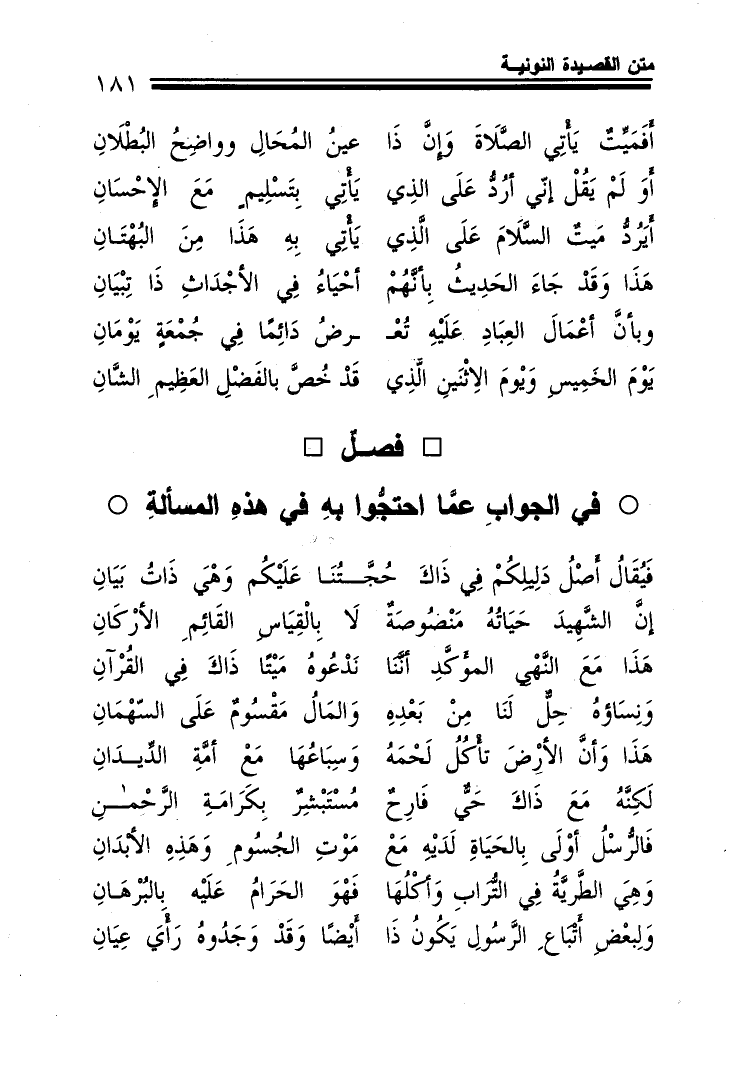 متن القصيدة النونية
١٨١
أَفَمَيِّتٌ يَأْتِي الصَّلَاةَ وَإِنَّ ذَا عينُ المُحَالِ وواضِحُ البُطْلَانِ
أَوَ لَمْ يَقُلْ إنّي أرُدُّ عَلَى الذِي يَأْتِي بِتَسْلِيمٍ مَعَ الإِحْسَانِ
أَيَرُدُّ مَيتٌ السَّلَامَ عَلَى الَّذِي يَأْتِي بِهِ هَذَا مِنَ البُهْتَانِ
هَذَا وَقَدْ جَاءَ الحَدِيثُ بِأنَّهُمْ أحْيَاءُ فِي الأجْدَاثِ ذَا تِبْيَانِ
وبأنَّ أعْمَالَ العِبَادِ عَلَيْهِ تُعْـ ـرضُ دَائِمًا فِي جُمْعَةٍ يَوْمَانِ
يَوْمَ الخَمِيسِ وَيَوْمَ الاِثْنَينِ الَّذِي قَدْ خُصَّ بالفَضْلِ العَظِيمِ الشَّانِ
□ فصـلٌ □
○ في الجوابِ عمَّا احتجُّوا بهِ في هذهِ المسألةِ ○
فَيُقَالُ أَصْلُ دَلِيلِكُمْ فِي ذَاكَ حُجَّـتُنَـا عَلَيْكُم وَهْيَ ذَاتُ بَيَانِ
إنَّ الشَّهِيدَ حَيَاتُهُ مَنْصُوصَةٌ لَا بِالْقِيَاسِ القَائِمِ الأرْكَانِ
هَذَا مَعَ النَّهْيِ المؤَكَّدِ أنَّنَا نَدْعُوهُ مَيْتًا ذَاكَ فِي القُرْآنِ
وَنِساؤهُ حِلٌّ لَنَا مِنْ بَعْدِهِ وَالمَالُ مَقْسُومٌ عَلَى السّهْمَانِ
هَذَا وَأنَّ الأرْضَ تأكُلُ لَحْمَهُ وَسِبَاعُهَا مَعْ أمَّةِ الدِّيـدَانِ
لَكِنَّهُ مَعَ ذَاكَ حَيٌّ فَارِحٌ مُسْتَبْشِرٌ بِكَرَامَـةِ الرَّحْمٰـنِ
فَالرُّسْلُ أوْلَى بِالحَيَاةِ لَدَيْهِ مَعْ مَوْتِ الجُسُومِ وَهَذِهِ الأبْدَانِ
وَهِيَ الطَّرِيَّةُ فِي التُّرَابِ وَأكْلُهَا فَهْوَ الحَرَامُ عَلَيْهِ بالبُرْهَـانِ
وَلِبعْضِ أتْبَاعِ الرَّسُولِ يَكُونُ ذَا أيْضًا وَقَدْ وَجَدُوهُ رَأْيَ عِيَانِ